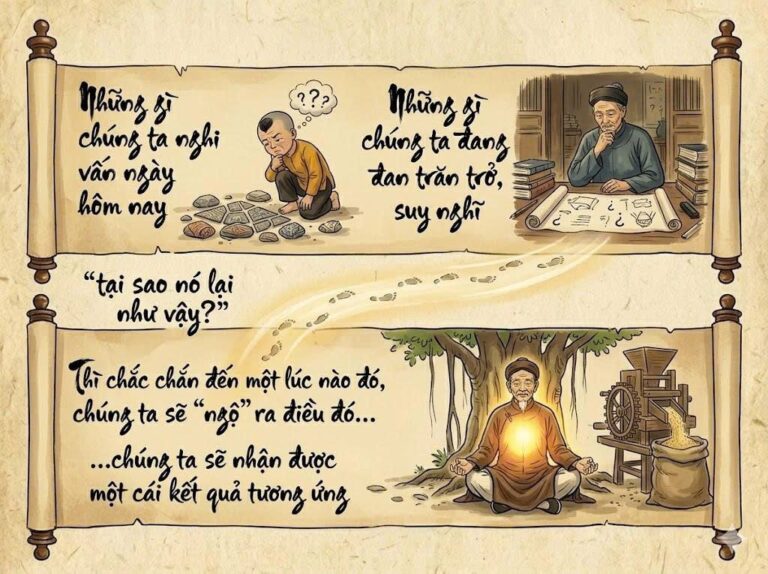 Những gì
chúng ta nghi
vấn ngày
hôm nay
???
Những gì
chúng ta đang
đan trăn trở,
suy nghĩ
“tại sao nó lại
như vậy?”
Thì chắc chắn đến một lúc nào đó,
chúng ta sẽ “ngộ” ra điều đó...
...chúng ta sẽ nhận được
một cái kết quả tương ứng